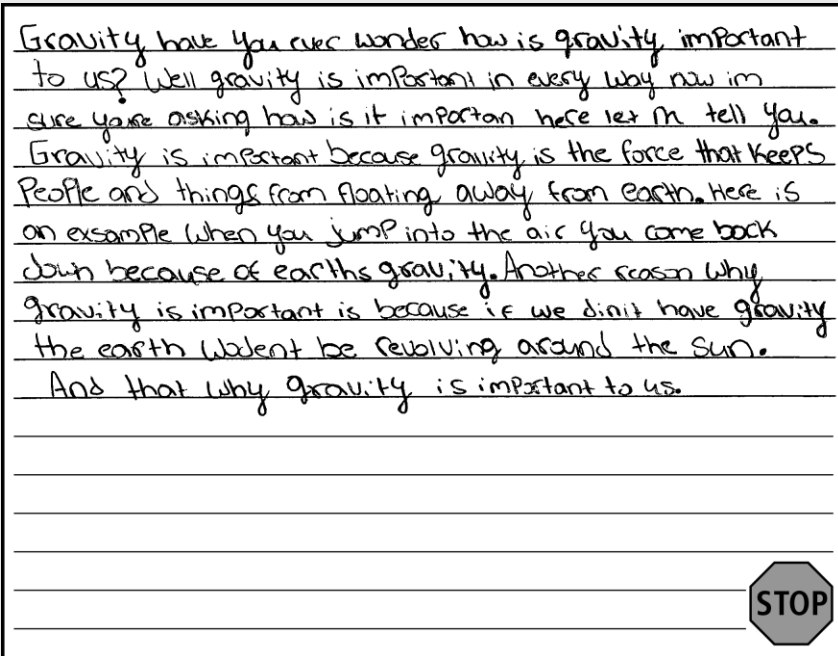 Gravity have you ever wonder how is gravity important
to us? Well gravity is important in every way now im
sure youre asking how is it importan here let m tell you.
Gravity is important because gravity is the force that keeps
People and things from floating away from earth. Here is
an exsample when you jump into the air you come back
down because of earths gravity. Another reason why
gravity is important is because if we dinit have gravity
the earth wodent be revolving around the sun.
And that why gravity is important to us.
STOP